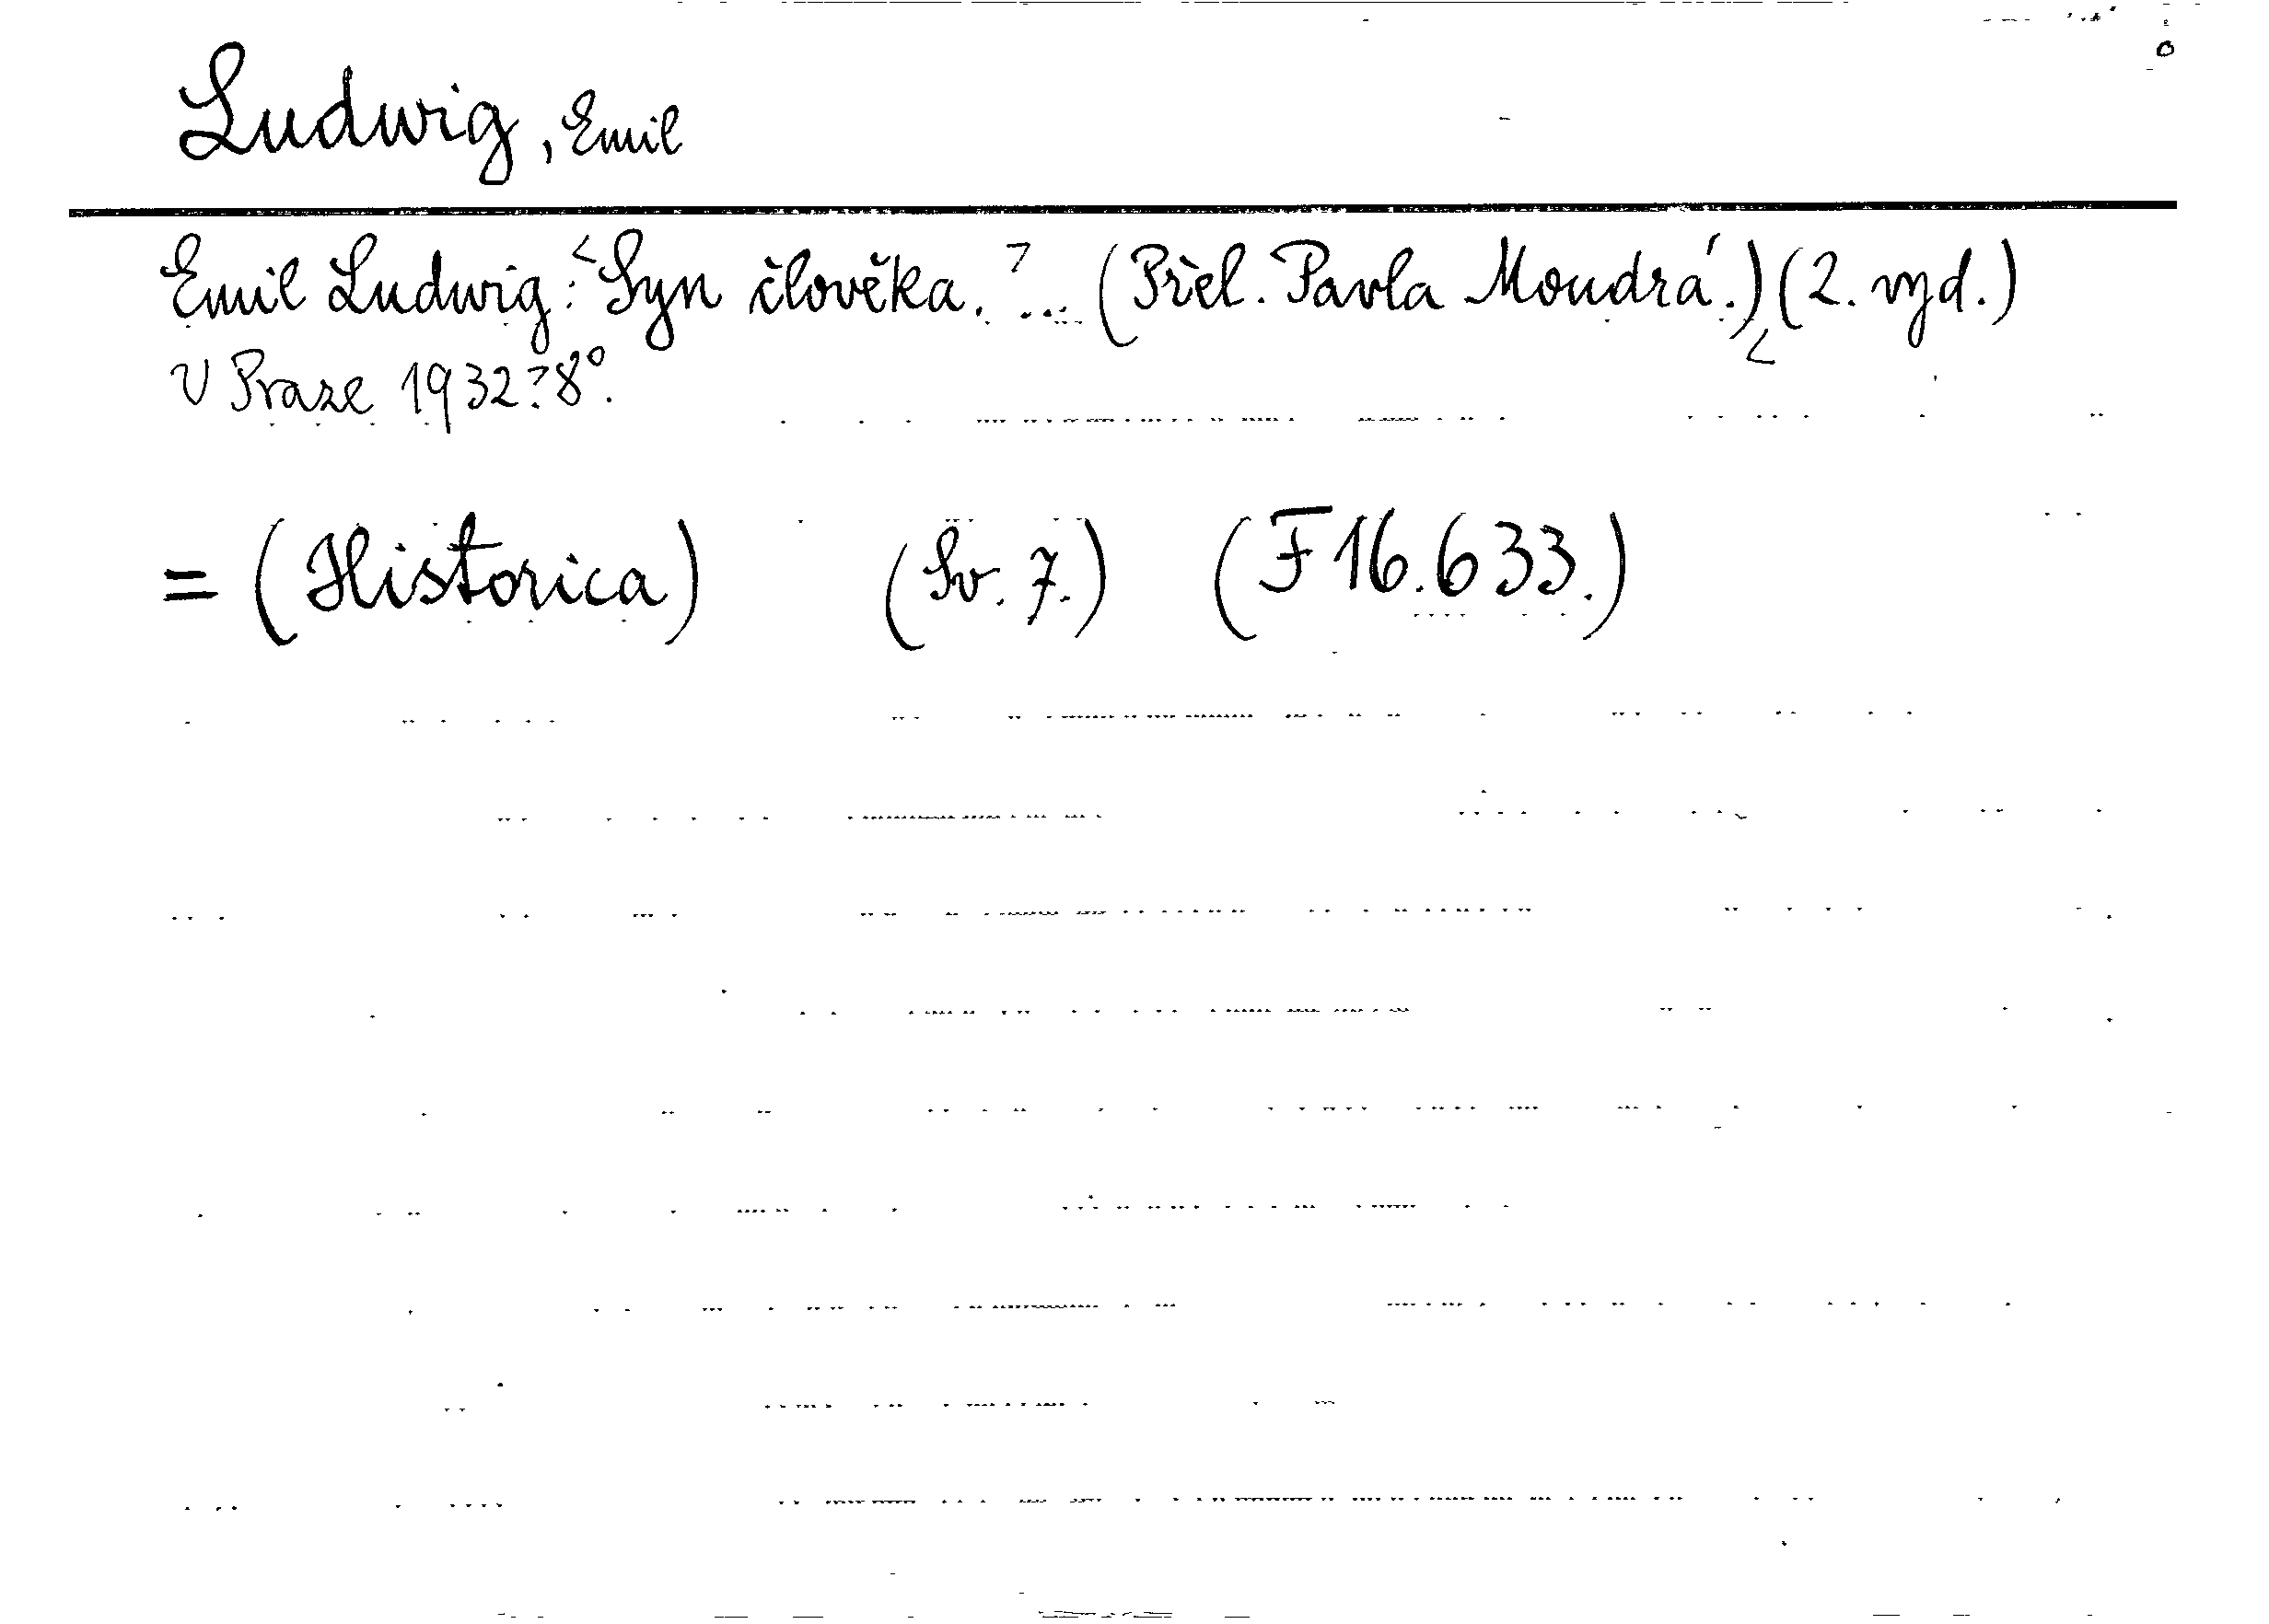 Ludwig, Emil
Emil Ludwig: <Syn člověka.> ... (Přel. Pavla Moudrá.) (2. vyd.)
<V Praze 1932.> 8°.
= (Historica) (Sv. 7.) (F 16.633.)